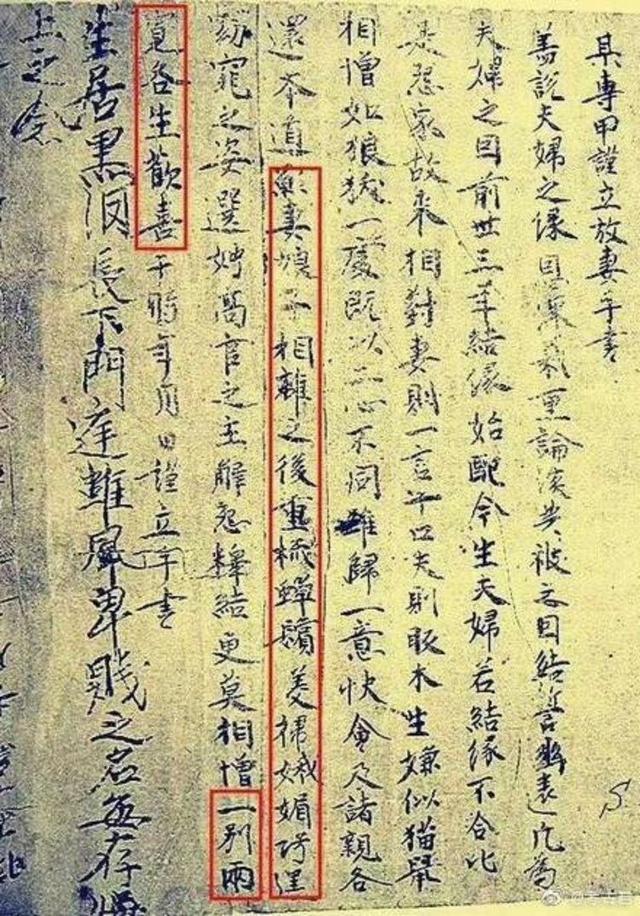 某專甲謹立放妻手書
蓋說夫婦之緣恩深義重論談共被之因結誓幽遠凡為
夫婦之因前世三年結緣始配今生夫婦若結緣不合比
是怨家故來相對妻則一言十口夫則反木生嫌似猫鼠
相憎如狼㹳一處既以二心不同難歸一意快會及諸親各
還本道願妻娘子相離之後重梳蟬鬢美掃娥媚巧逞
窈窕之姿選娉高官之主解怨釋結更莫相憎一別兩
寬各生歡喜于時年月日謹立手書
生居黑 長下門 雖 卑賤之名無存
上之念
S.